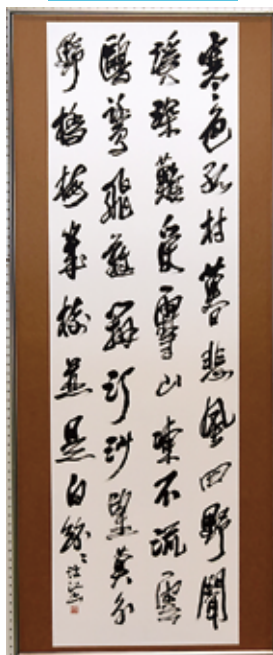 寒色孤村暮悲風四野聞
溪深難受雪山凍不流雲
鷗鷺飛難辨汀沙望莫分
野橋梅幾樹並是白紛々